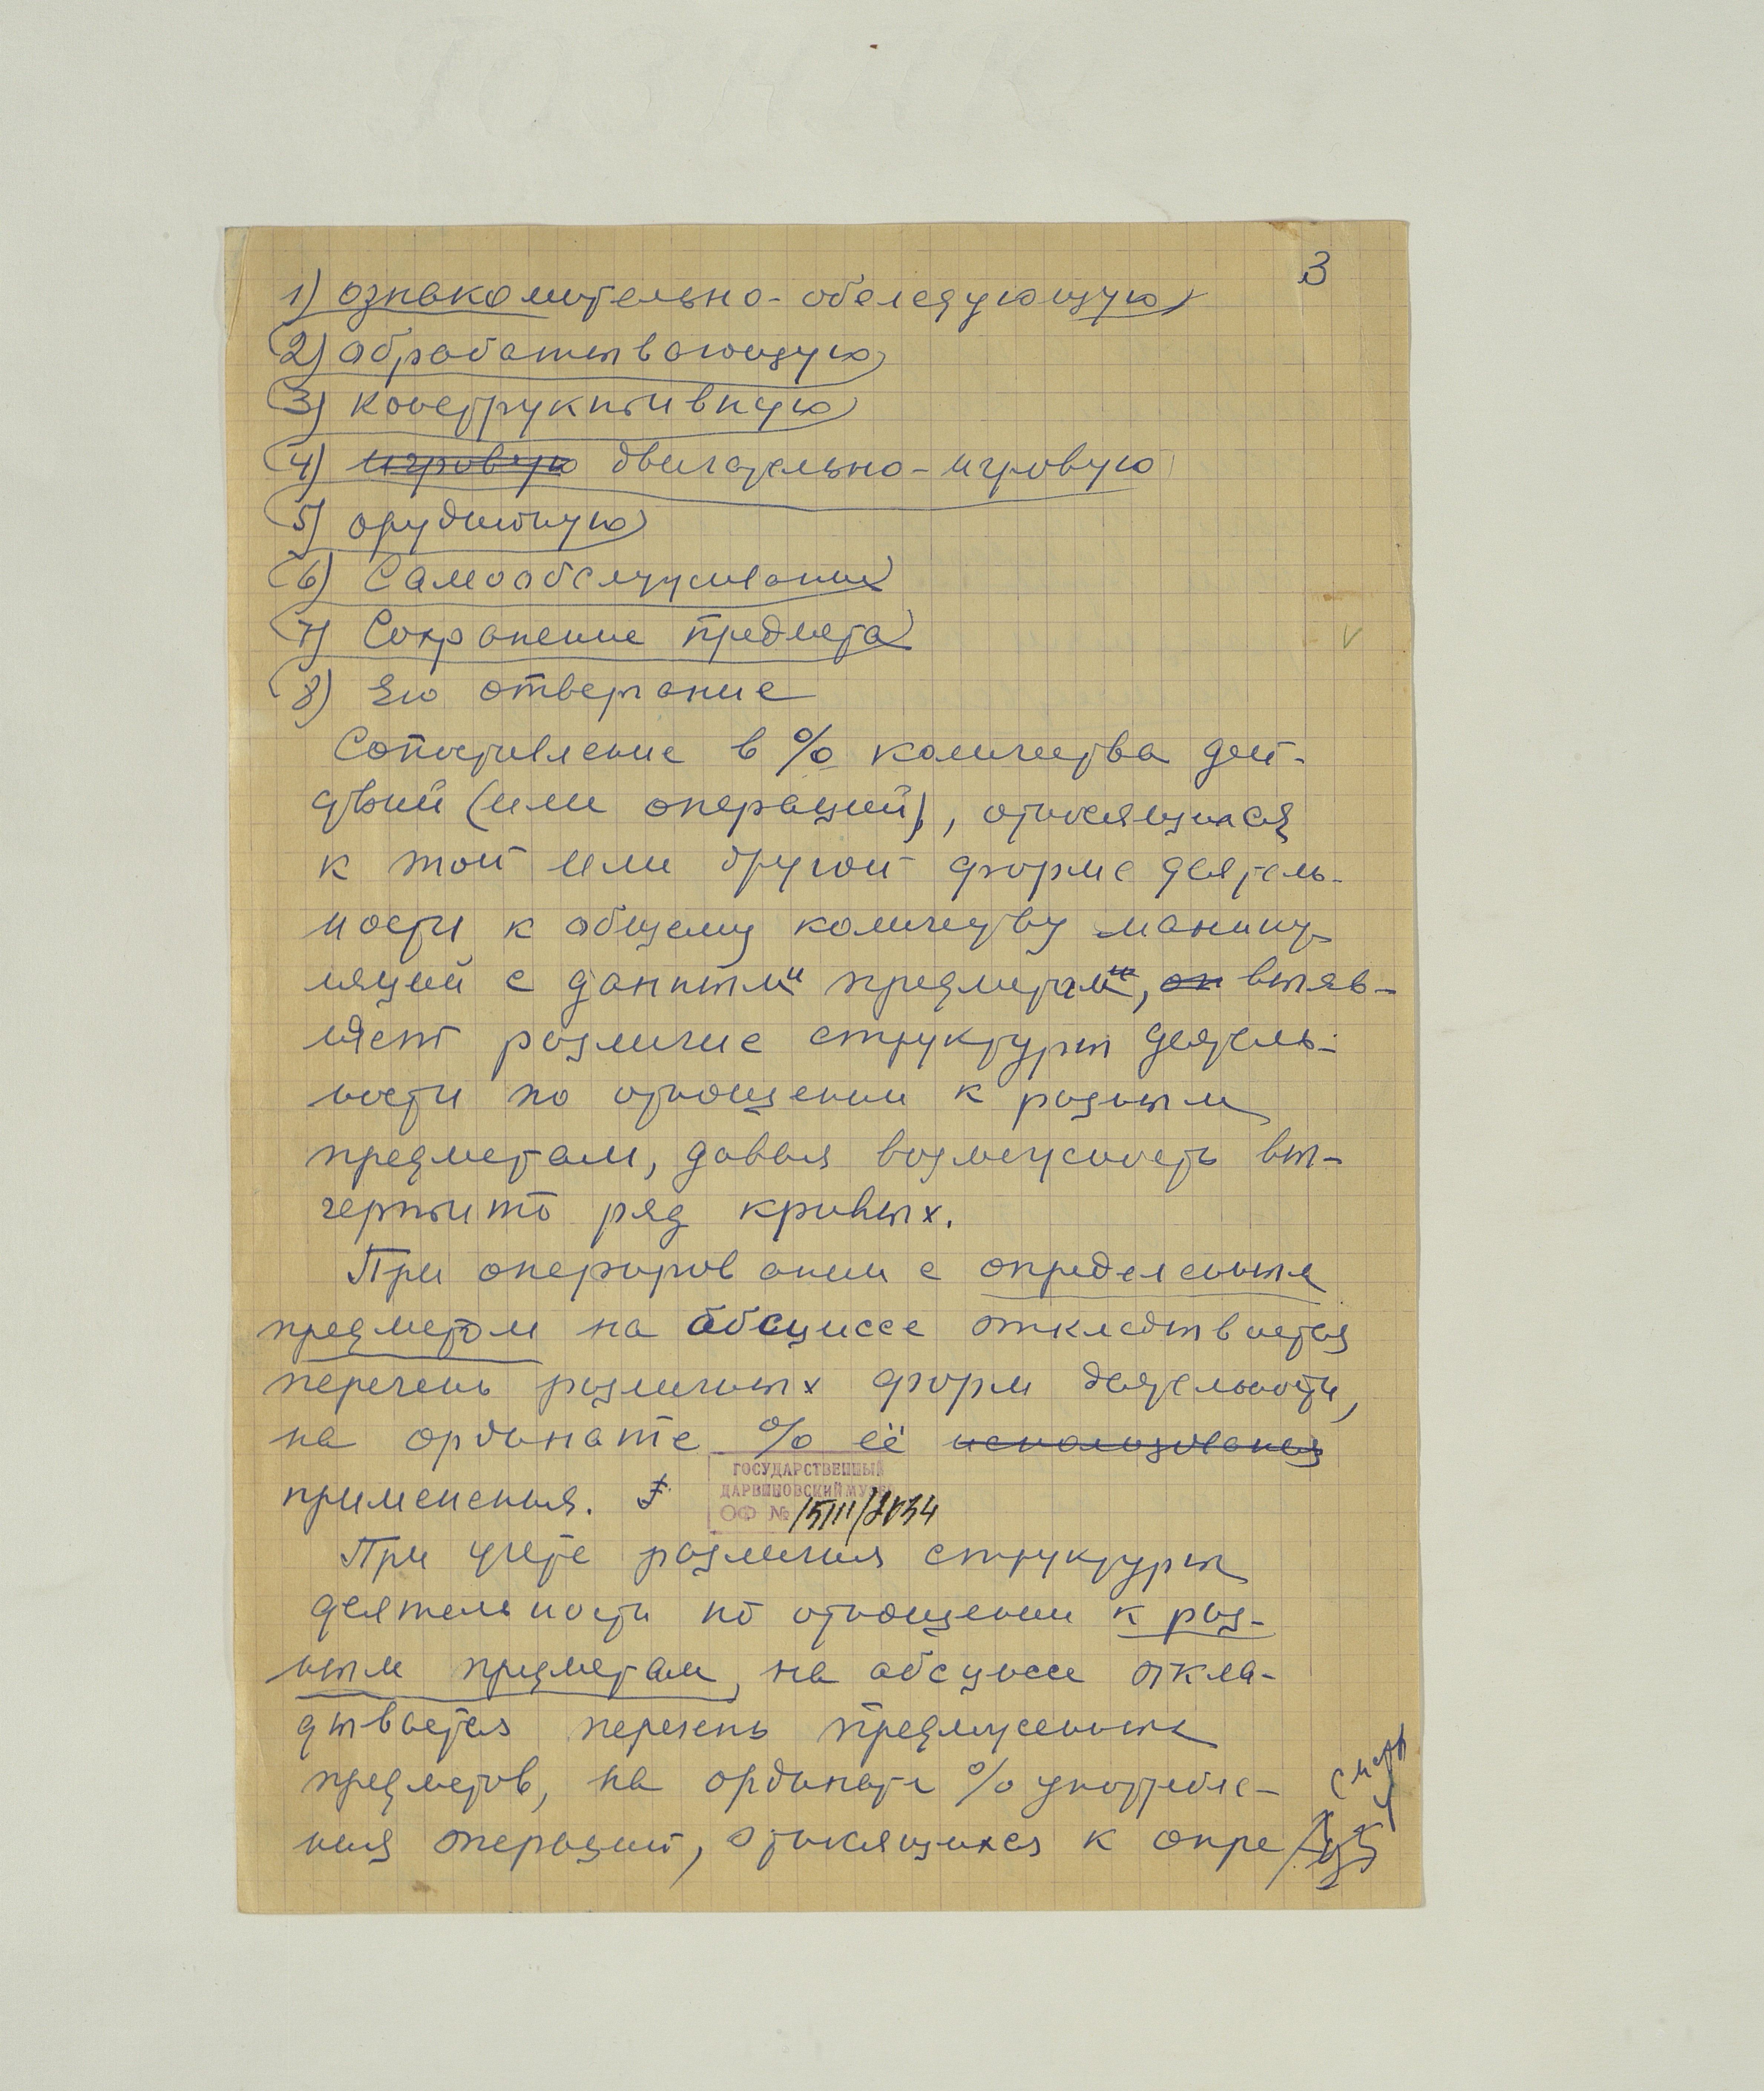 3
1) ознакомительно-обследующую
2) обрабатывающую
3) конструктивную
4) игровую двигательно-игровую
5) орудийную
6) Самообслуживание
7) Сохранение предмета
8) Его отвергание
Сопоставление в % количества дей-
ствий (или операций), относящихся
к той или другой форме деятель-
ности к общему количеству манипу-
ляций с данными предметами, он выяв-
ляет различие структуры деятель-
ности по отношению к разным
предметам, давая возможность вы-
чертить ряд кривых.
При оперировании с определенным
предметом на абсциссе откладывается
перечень различных форм деятельности,
на ординате % её использования
применения.
ГОСУДАРСТВЕННЫЙ
ДАРВИНОВСКИЙ МУЗЕ
ОФ № 15111/2034
При учете различия структуры
деятельности по отношению к раз-
ным предметам, на абсциссе откла-
дывается перечень предложенных
предметов, на ординате % употребле-
ния операций, относящихся к опре